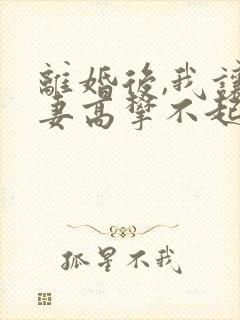 離婚後,我讓
妻高攀不起
孤星不我